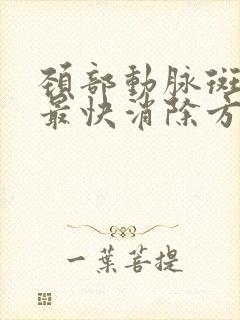 頸部動脉斑
最快消除方
一葉菩提